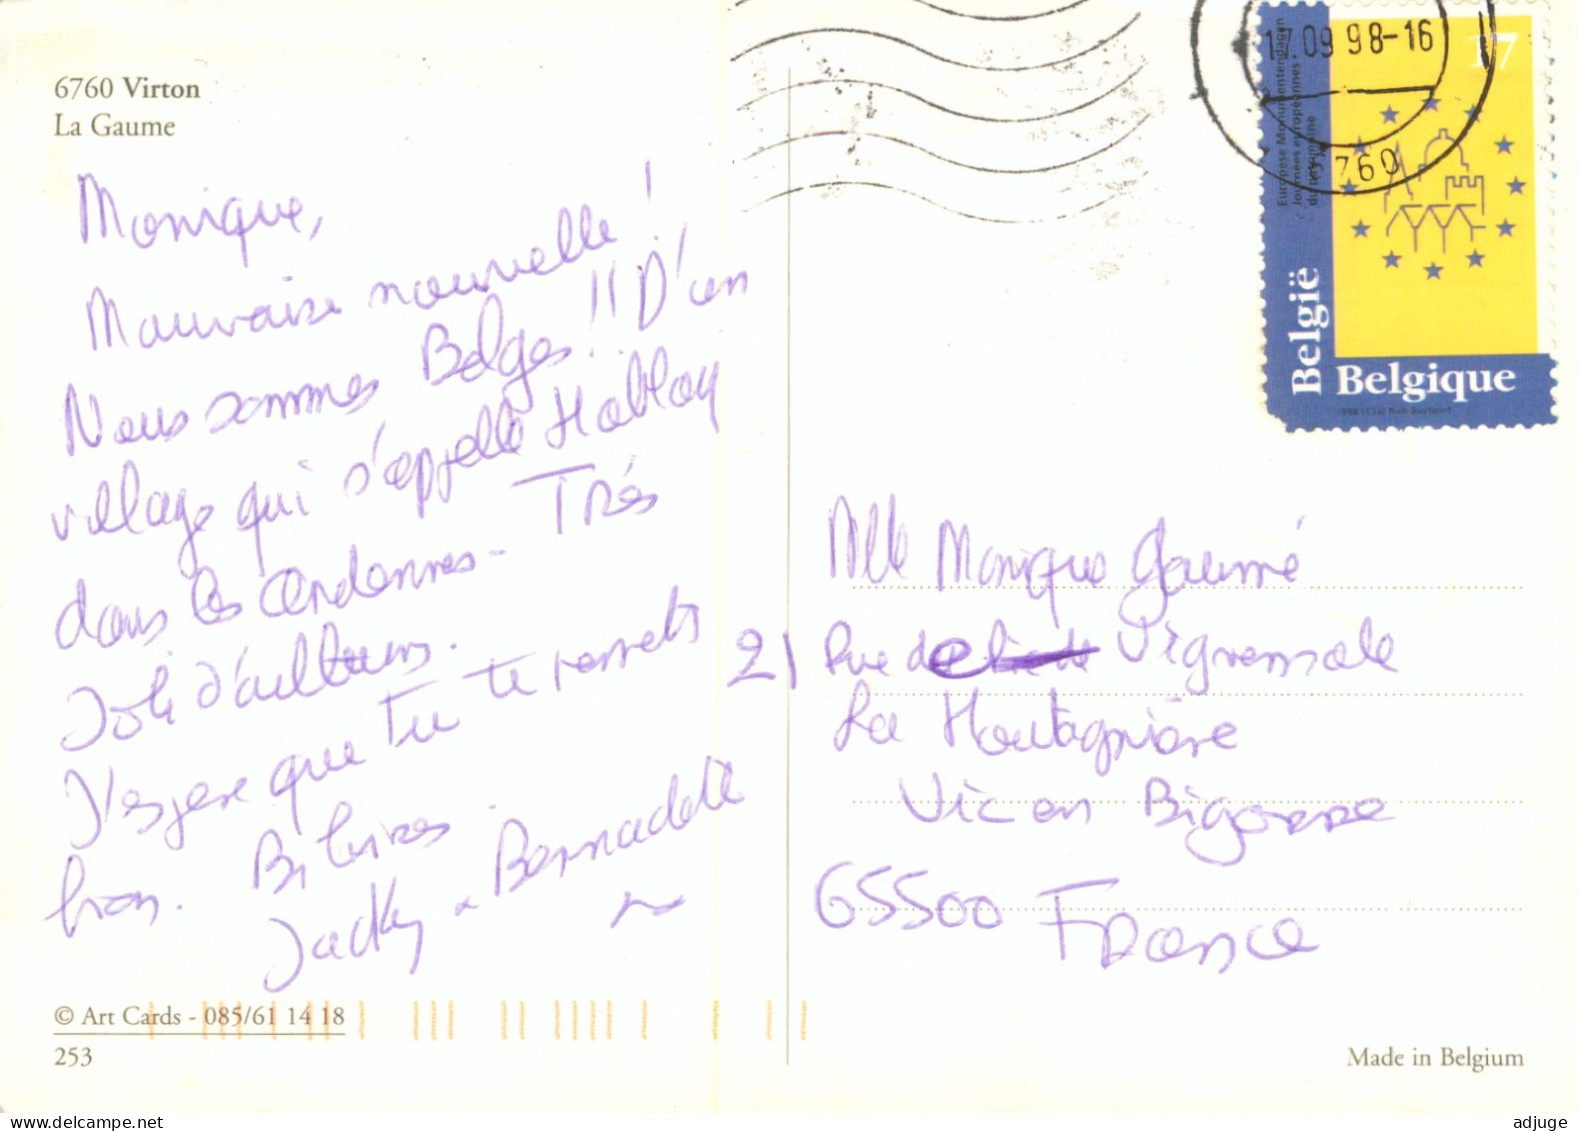 6760 Virton
La Gaume
Monique,
Mauvaise nouvelle !
Nous sommes Belges !! D'un
village qui s'appelle Hablay
dans les Ardennes - Très
Joli d'ailleurs.
J'espere que tu te remets
bien. Bises
Jacky Bernadette
© Art Cards - 085/61 14 18
253
17.09 98-16
6760
17
Europese Monumentendagen
Journées européennes
du patrimoine
België
Belgique
Mlle Monique Gaumé
21 Rue de Vignemale
La Hautagnière
Vic en Bigorre
65500 France
Made in Belgium
adjuge